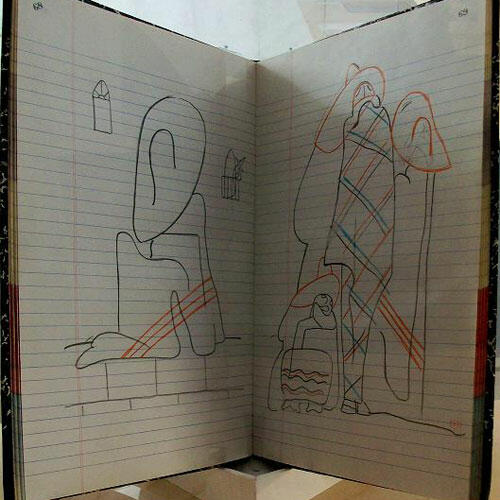 68
69